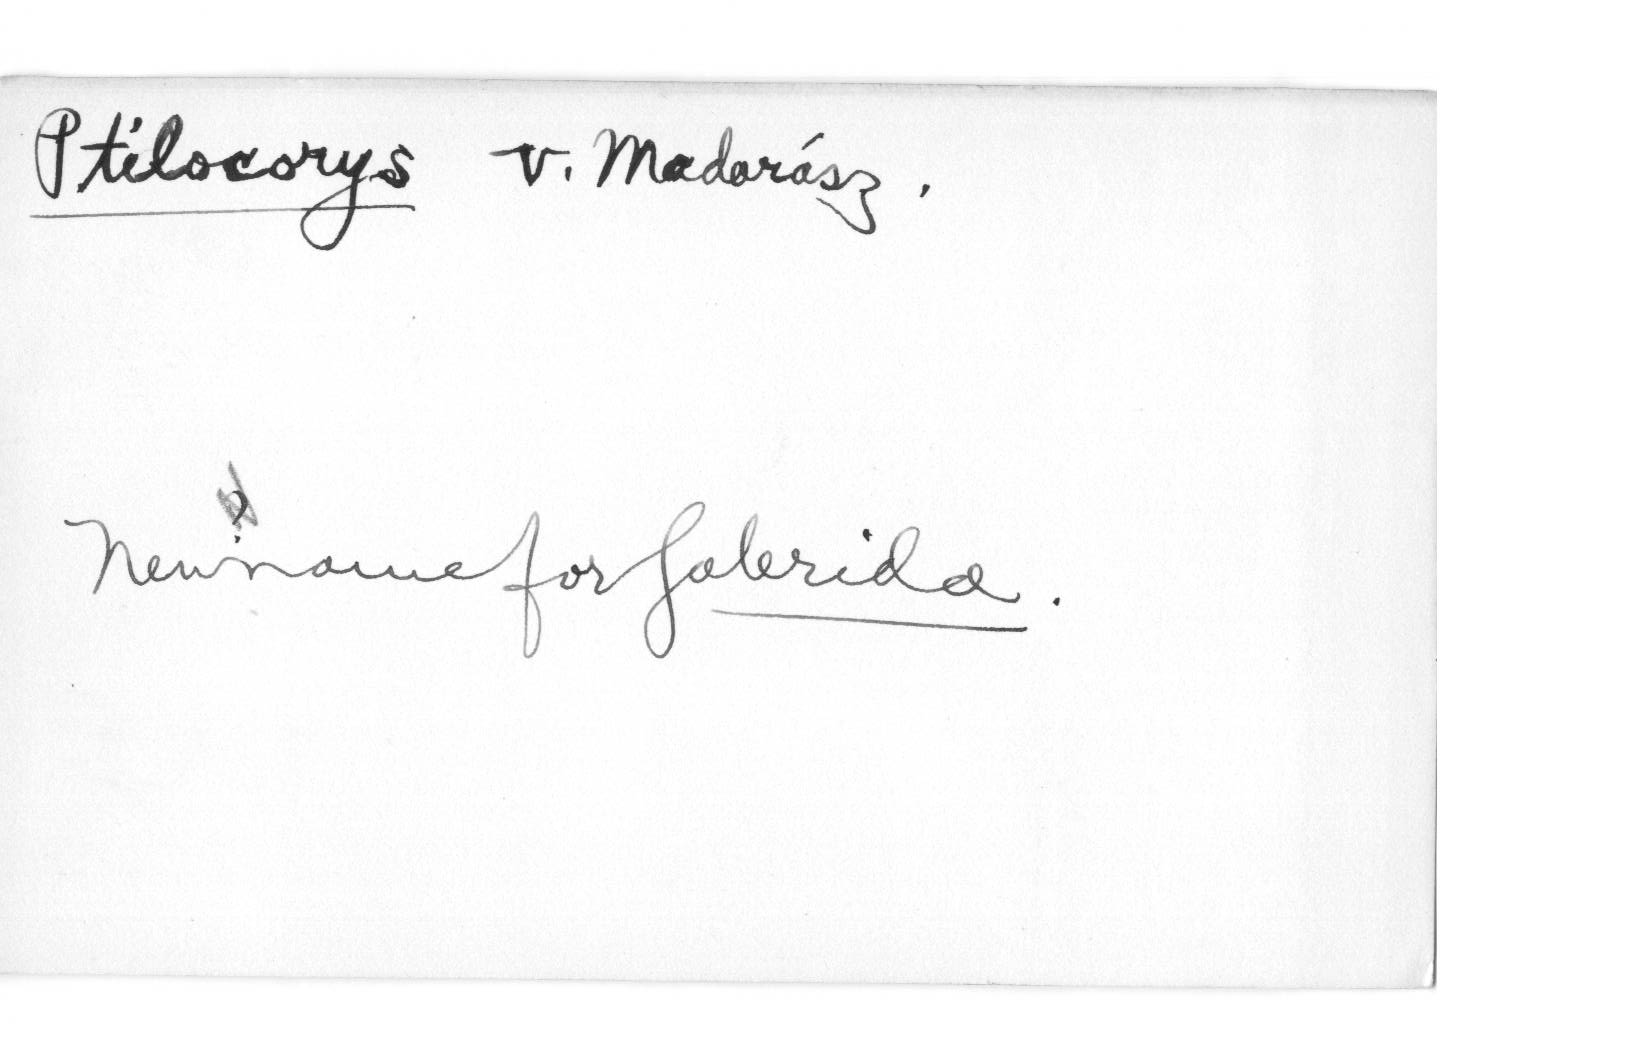 Ptilocorys v. Madarász.
New name for Galerida.